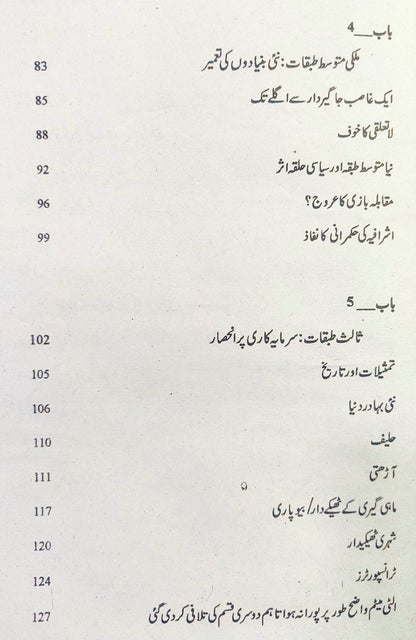 باب __ 4
ملکی متوسط طبقات: نئی بنیادوں کی تعمیر 83
ایک غاصب جاگیردار سے اگلے تک 85
لاتعلقی کا خوف 88
نیا متوسط طبقہ اور سیاسی حلقہ اثر 92
مقابلہ بازی کا عروج؟ 96
اشرافیہ کی حکمرانی کا نفاذ 99
باب __ 5
ثالث طبقات: سرمایہ کاری پر انحصار 102
تمثیلات اور تاریخ 105
نئی بہادر دنیا 106
حلیف 110
آڑھتی 111
ماہی گیری کے ٹھیکے دار/ بیوپاری 117
شہری ٹھیکیدار 120
ٹرانسپورٹرز 124
الٹی میٹم واضح طور پر پورا نہ ہوا تاہم دوسری قسم کی تلافی کر دی گئی 127